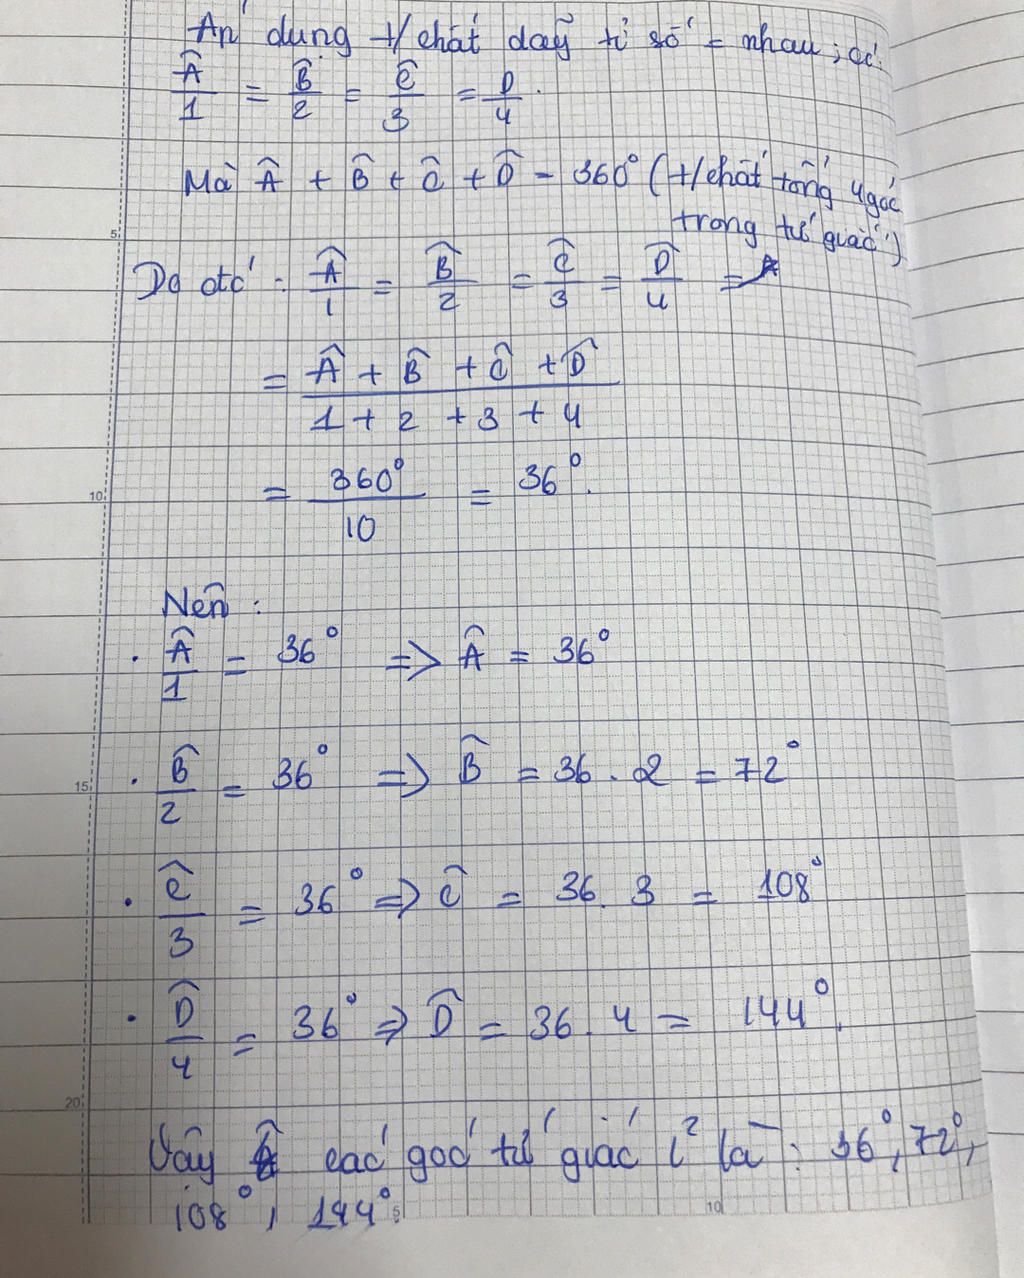 Áp dụng t/chất dãy tỉ số = nhau, có:
Â/1 = B̂/2 = Ĉ/3 = D̂/4.
Mà Â + B̂ + Ĉ + D̂ = 360° (t/chất tổng 4 góc
trong tứ giác)
5
Do đó: Â/1 = B̂/2 = Ĉ/3 = D̂/4 =
= Â + B̂ + Ĉ + D̂ / 1 + 2 + 3 + 4
10
= 360°/10 = 36°.
Nên:
. Â/1 = 36° => Â = 36°
15
. B̂/2 = 36° => B̂ = 36 . 2 = 72°
. Ĉ/3 = 36° => Ĉ = 36 . 3 = 108°
. D̂/4 = 36° => D̂ = 36 . 4 = 144°.
20
Vậy các góc tứ giác l² là: 36°, 72°,
108°, 144°.
5 10